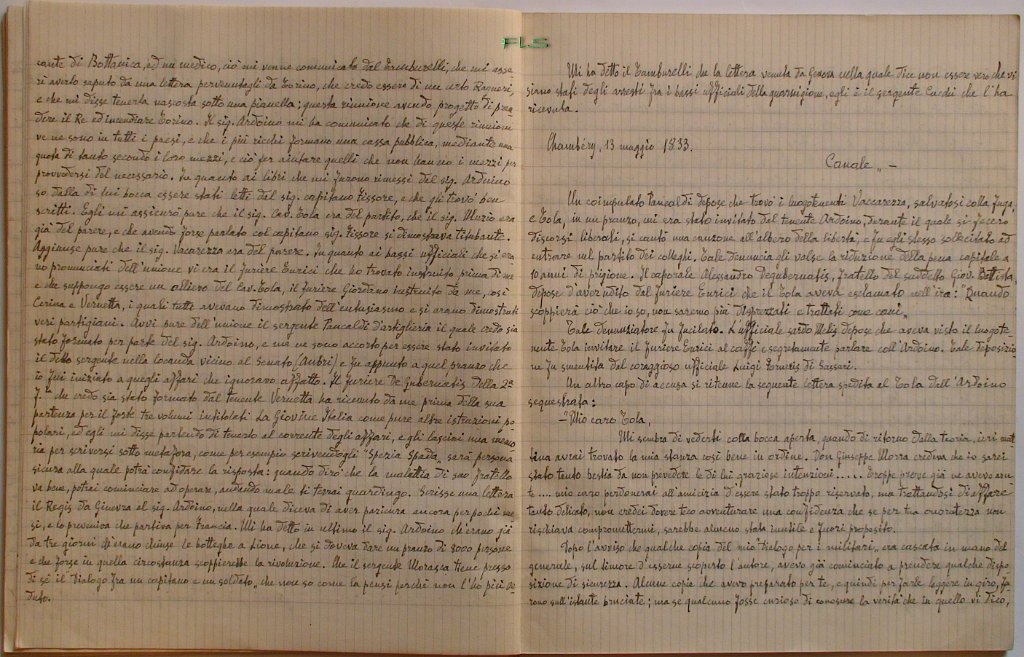 cante di Bottanica, ed un medico, ciò mi venne comunicato dal Tamburelli, che mi asse
rì averlo saputo da una lettera pervenutagli da Torino, che credo essere di un certo Ranieri,
e che mi disse tenerla nascosta sotto una pianella; questa riunione avendo progetto di pren
dere il Re ed incendiare Torino. Il sig. Ardoino mi ha comunicato che di queste riunioni
ve ne sono in tutti i paesi, e che i più ricchi formano una cassa pubblica, mediante una
quota di tanto secondo i loro mezzi, e ciò per aiutare quelli che non hanno i mezzi per
provvedersi del necessario. In quanto ai libri che mi furono rimessi dal sig. Ardoino
so dalla di lui bocca essere stati letti dal sig. capitano Pissore, e che gli trovò ben
scritti. Egli mi assicurò pure che il sig. Cav. Tola era del partito, che il sig. Muzio era
già del parere, e che avendo forse parlato col capitano sig. Pissore si dimostrava titubante.
Aggiunse pure che il sig. Vacarezza era del parere. In quanto ai bassi ufficiali che si era
no pronunciati dell'unione vi era il furiere Enrici che ho trovato instruito prima di me
e che suppongo essere un allievo del Cav. Tola, il furiere Giordano instruito da me, così
Cerina e Vernetta, i quali tutti avevano dimostrato dell'entusiasmo e si erano dimostrati
veri partigiani. Avvi pure dell'unione il sergente Tancaldi d'artiglieria il quale credo sia
stato formato per parte del sig. Ardoino, e me ne sono accorto per essere stato invitato
il detto sergente nella locanda vicino al Senato (Aubri) e fu appunto a quel pranzo che
io fui iniziato a quegli affari che ignoravo affatto. Il furiere De Gubernatis della 2ª
f.ª che credo sia stato formato dal tenente Vernetta ha ricevuto da me prima della sua
partenza per il forte tre volumi intitolati La Giovine Italia come pure altre istruzioni po
polari, ed egli mi disse partendo di tenerlo al corrente degli affari, e gli lasciai una memo
ria per scriversi sotto metafora, come per esempio scrivendogli "Spezia Spada, sarà persona
sicura alla quale potrà confidare la risposta: quando dirò che la malattia di suo fratello
va bene, potrai cominciare ad operare, andando male ti terrai guardingo. Scrisse una lettera
il Regis da Ginevra al sig. Ardoino, nella quale diceva di aver paziura ancora per pochi me
si, e lo preveniva che partiva per Francia. Mi ha detto in ultimo il sig. Ardoino ch'erano già
da tre giorni ch'erano chiuse le botteghe a Lione, che si doveva dare un pranzo di 3000 persone
e che forse in quella circostanza scoppierebbe la rivoluzione. Che il sergente Morassa tiene presso
di sè il Dialogo fra un capitano e un soldato, che non so come la pensi perchè non l'ho più ve
duto.
FLS
Mi ha detto il Tamburelli che la lettera venuta da Genova nella quale dice non essere vero che vi
siano stati degli arresti fra i bassi ufficiali della guarnigione, egli è il sergente che l'ha
ricevuta.
Chambéry, 13 maggio 1833.
Canale „ -
Un coimputato Tancaldi depose che trovò i luogotenenti Vaccarezza, salvatosi colla fuga,
e Tola, in un pranzo, cui era stato invitato dal tenente Ardoino, durante il quale si fecero
discorsi liberali, si cantò una canzone all'albero della libertà, e fu egli stesso sollecitato ad
entrare nel partito dei colleghi. Tale denuncia gli valse la riduzione della pena capitale a
10 anni di prigione. Il caporale Alessandro Degubernatis, fratello del sardetto Giov. Battista,
depose d'aver udito dal furiere Enrici che il Tola aveva esclamato nell'ira: "Quando
scoppierà ciò che io so, non saremo più disprezzati e trattati come cani".
Tale denunziatore fu fucilato. L'ufficiale sardo Melis depose che aveva visto il luogote
nente Tola invitare il furiere Enrici al caffè e segretamente parlare coll'Ardoino. Tale deposizio
ne fu smentita dal coraggioso ufficiale Luigi di Sassari.
Un altro capo di accusa si ritenne la seguente lettera spedita al Tola dall'Ardoino
sequestrata:
– Mio caro Tola,
Mi sembra di vederti colla bocca aperta, quando di ritorno dalla teoria, ieri mat
tina avrai trovato la mia stanza così bene in ordine. Don Giuseppe Morra credeva che io sarei
stato tanto bestia da non prevedere le di lui graziose intenzioni..... Troppe prove già ne avevo avu
te.... mio caro perdonerai all'amicizia d'essere stato troppo riservato, ma trattandosi di affare
tanto delicato, non credei dover teco avventurare una confidenza che se per tua onoratezza non
rischiava compromettermi, sarebbe almeno stata inutile e fuori proposito.
Dopo l'avviso che qualche copia del mio dialogo per i militari, era cascata in mano del
generale, sul timore d'esserne scoperto l'autore, avevo già cominciato a prendere qualche dispo
sizione di sicurezza. Alcune copie che avevo preparato per te, e quindi per farle leggere in giro, fu
rono sull'istante bruciate; ma se qualcuno fosse curioso di conoscere la verità che in quello vi dico,